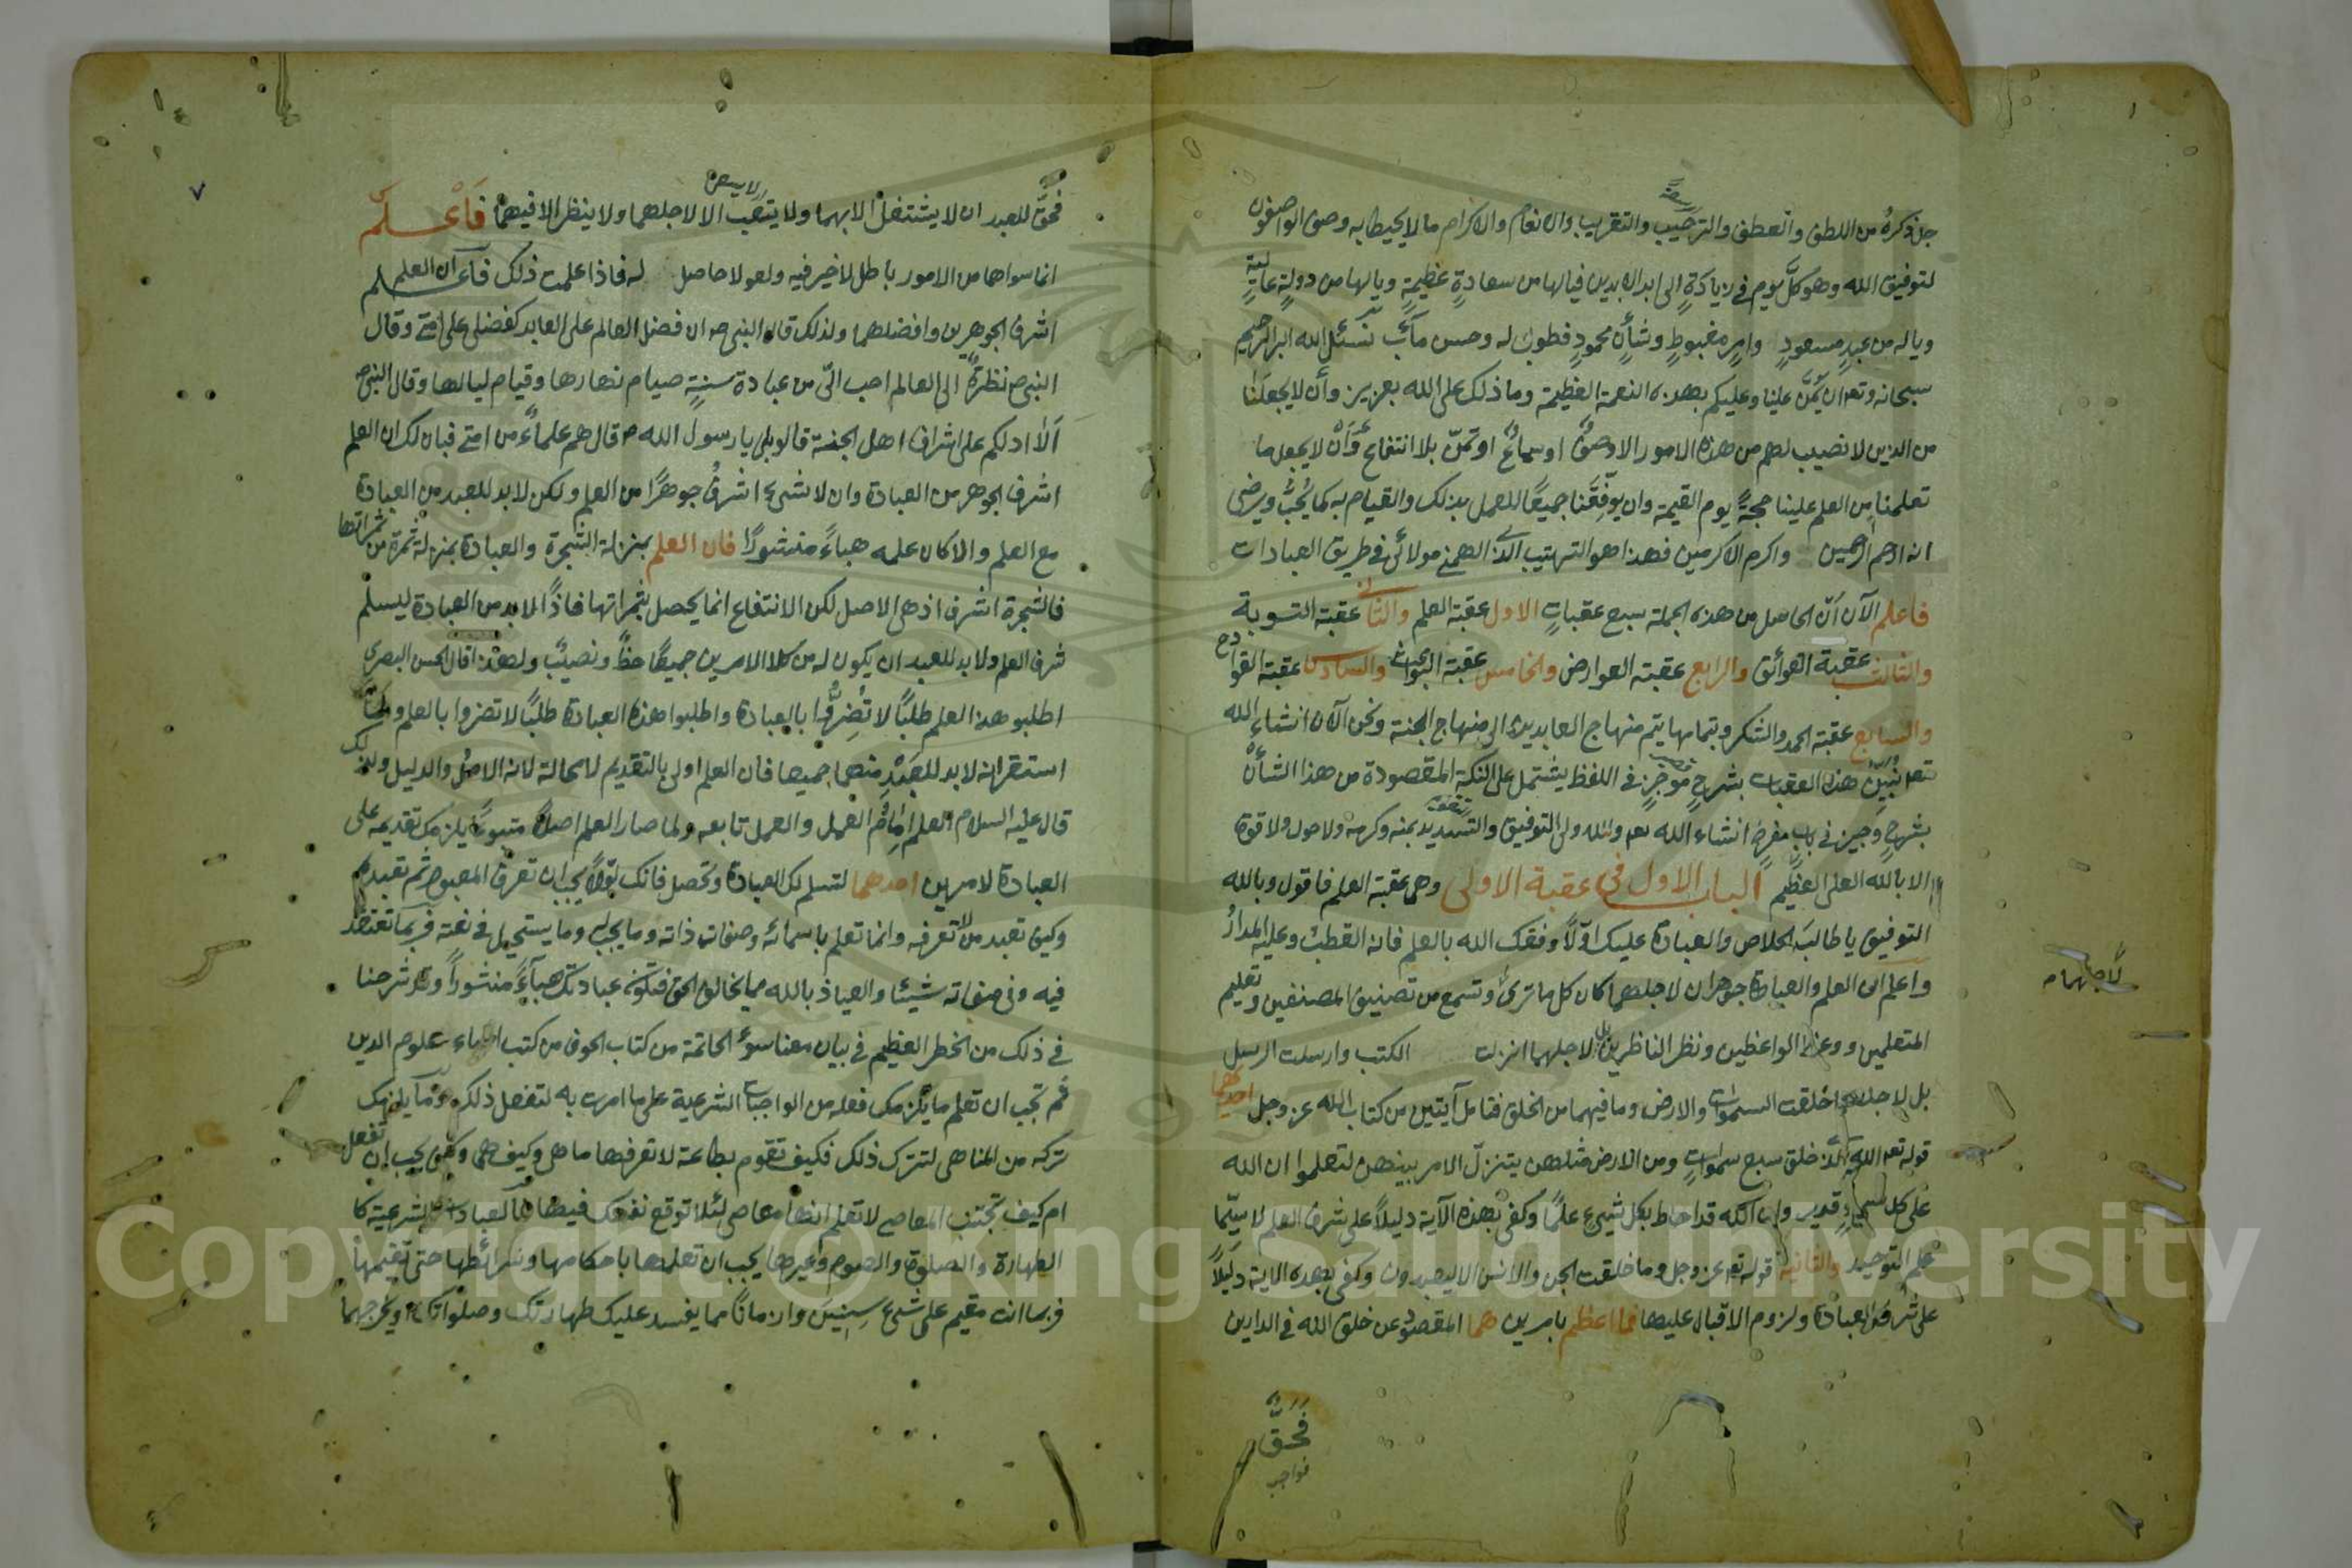 جل ذكره من اللطف والعطف والترحيب والتقريب والانعام والاكرام ما لا يحيط به وصف الواصفون
لتوفيق الله وهو كل يوم في زيادة الى ابد الابدين فيالها من سعادة عظيمة ويالها من دولة عالية
وياله من عبد مسعود وامره مغبوط وشأن محمود فطوبى له وحسن مآب نسئل الله البر الرحيم
سبحانه وتعه ان يمن علينا وعليكم بهذه النعمة العظيمة وما ذلك على الله بعزيز وأن لا يجعلنا
من الذين لا نصيب لهم من هذه الامور الا وصف او سمائع او تمن بلا انتفاع وأن لا يجعل ما
تعلمنا من العلم علينا حجة يوم القيمة وان يوفقنا جميعا للعمل بذلك والقيام به كما يحب ويرضى
انه ارحم الرحمين واكرم الاكرمين فهذا هو الترتيب الذى الهمنى مولائى فى طريق العبادات
فاعلم الآن أن الحاصل من هذه الجملة سبع عقبات الاول عقبة العلم والثانى عقبة التوبة
والثالث عقبة العوائق والرابع عقبة العوارض والخامس عقبة البواعث والسادس عقبة القوادح
والسابع عقبة الحمد والشكر وبتمامها يتم منهاج العابدين الى منهاج الجنة ونحن الآن انشاء الله
تعه نبين هذه العقبات بشرح موجز فى اللفظ يشتمل على النكة المقصودة من هذا الشأن
بشرح وجيز فى باب مفرد انشاء الله تعه والله ولى التوفيق والتسديد بمنه وكرمه ولا حول ولا قوة
الا بالله العلى العظيم الباب الاول فى عقبة الاولى وهى عقبة العلم فاقول وبالله
التوفيق يا طالب الخلاص والعبادة عليك اولا وفقك الله بالعلم فانه القطب وعليه المدار
واعلم ان العلم والعبادة جوهران لاجلهما كان كل ما ترى وتسمع من تصنيف المصنفين وتعليم
المتعلمين ووعظ الواعظين ونظر الناظرين بل لاجلهما انزلت الكتب وارسلت الرسل
لاجلهما
بل لاجلهما خلقت السموات والارض وما فيهما من الخلق فتامل آيتين من كتاب الله عز وجل احديهما
قوله تعه الله الذى خلق سبع سموات ومن الارض مثلهن يتنزل الامر بينهن لتعلموا ان الله
على كل شيء قدير وان الله قد احاط بكل شيء علما وكفى بهذه الآية دليلا على شرف العلم لا سيما
علم التوحيد والثانية قوله تعه عز وجل وما خلقت الجن والانس الا ليعبدون وكفى بهذه الاية دليلا
على شرف العبادة ولزوم الاقبال عليها فما اعظم بامرين هما المقصود عن خلق الله فى الدارين
فحق
فواجب
٧
فحق للعبد ان لا يشتغل الا بهما ولا يتعب الا لاجلهما ولا ينظر الا فيهما فاعلم
انما سواهما من الامور باطل لا خير فيه ولغو لا حاصل له فاذا علمت ذلك فاعلم ان العلم
اشرف الجوهرين وافضلهما ولذلك قال النبى ص ان فضل العالم على العابد كفضلى على امتى وقال
النبى ص نظرة الى العالم احب الى من عبادة سنة صيام نهارها وقيام ليالها وقال النبى ص
ألا ادلكم على اشراف اهل الجنة قالو بلى يا رسول الله ص قال هم علماء من امتى فبان لك ان العلم
اشرف الجوهر من العبادة وان لا شيء اشرف جوهرا من العلم ولكن لا بد للعبد من العبادة
مع العلم والا كان علمه هباء منشورا فان العلم بمنزلة الشجرة والعبادة بمنزلة ثمرة من ثمراتها
فالشجرة اشرف اذ هى الاصل لكن الانتفاع انما يحصل بثمراتها فاذا لا بد من العبادة ليسلم
شرف العلم ولا بد للعبد ان يكون له من كلا الامرين جميعا حظ ونصيب ولهذا قال الحسن البصرى
اطلبو هذا العلم طلبا لا تضروا بالعبادة واطلبوا هذه العبادة طلبا لا تضروا بالعلم ولما
استقر انه لا بد للعبد منهما جميعا فان العلم اولى بالتقديم لا محالة لانه الاصل والدليل ولذلك
قال عليه السلام العلم امام العمل والعمل تابعه ولما صار العلم اصلا متبوعا يلزمك تقديمه على
العبادة لامرين احدهما لتسلم لك العبادة وتحصل فانك اولا يجب ان تعرف المعبود ثم تعبده
وكيف تعبد من لا تعرفه وانما تعلم باسمائه وصفات ذاته وما يجب له وما يستحيل فى نعته فربما تعتقد
فيه وفى صفاته شيئا والعياذ بالله مما يخالف الحق فتكون عبادتك هباء منشورا وقد شرحنا
فى ذلك من الخطر العظيم فى بيان معنا سوء الخاتمة من كتاب الخوف من كتب احياء علوم الدين
ثم تجب ان تعلم ما يلزمك فعله من الواجبات الشرعية على ما امرت به لتفعل ذلك وما يلزمك
تركه من المناهى لتترك ذلك فكيف تقوم بطاعة لا تعرفها ما هى وكيف هى وكيف يجب ان تفعل
ام كيف تجتنب المعاصى لا تعلم انها معاصى لئلا توقع نفسك فيها فالعبادات الشرعية كا
الطهارة والصلوة والصوم وغيرها يجب ان تعلمها باحكامها وشرائطها حتى تقيمها
فربما انت مقيم على شيء سنين وازمانا مما يفسد عليك طهارتك وصلواتك او يخرجهما
Copyright © King Saud University
1957